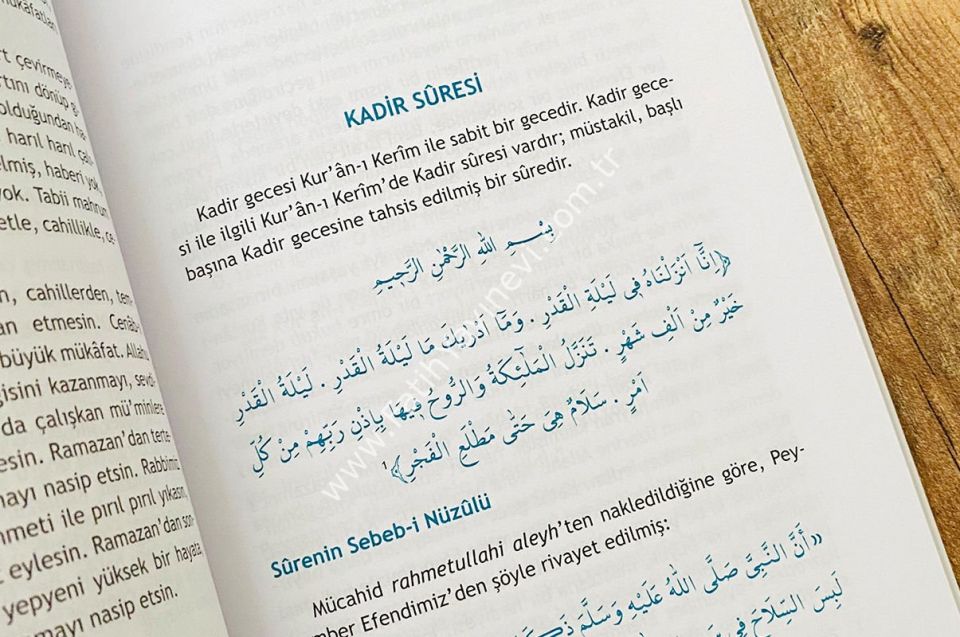 mükâfatları
rt çevirmeye
rtını dönüp gi-
olduğundan ha-
harıl harıl çalı-
elmiş, haberi yok,
yok. Tabii mahrum
etle, cahillikle, ce-
n, cahillerden, tem-
an etmesin. Cenâb-ı
büyük mükâfat. Allahu
gisini kazanmayı, sevdi-
da çalışkan mü'minlere
esin. Ramazan'dan terte-
mayı nasip etsin. Rabbimiz
hmeti ile pırıl pırıl yıkasın,
t eylesin. Ramazan'dan son-
yepyeni yüksek bir hayata
mayı nasip etsin.
KADİR SÛRESİ
Kadir gecesi Kur'ân-ı Kerîm ile sabit bir gecedir. Kadir gece-
si ile ilgili Kur'ân-ı Kerîm'de Kadir sûresi vardır; müstakil, başlı
başına Kadir gecesine tahsis edilmiş bir sûredir.
بِسْمِ اللهِ الرَّحْمٰنِ الرَّحِيمِ
﴿اِنَّا اَنْزَلْنَاهُ فِي لَيْلَةِ الْقَدْرِ . وَمَا اَدْرٰيكَ مَا لَيْلَةُ الْقَدْرِ . لَيْلَةُ الْقَدْرِ
خَيْرٌ مِنْ اَلْفِ شَهْرٍ . تَنَزَّلُ الْمَلٰئِكَةُ وَالرُّوحُ فِيهَا بِاِذْنِ رَبِّهِمْ مِنْ كُلِّ
اَمْرٍ . سَلَامٌ هِيَ حَتّٰى مَطْلَعِ الْفَجْرِ﴾١
Sûrenin Sebeb-i Nüzûlü
Mücahid rahmetullahi aleyh'ten nakledildiğine göre, Pey-
mber Efendimiz'den şöyle rivayet edilmiş:
«أَنَّ النَّبِيَّ صَلَّى اللهُ عَلَيْهِ وَسَلَّمَ ذَكَرَ
لَبِسَ السِّلَاحَ فِي
www.fatihruyunevi.com.tr